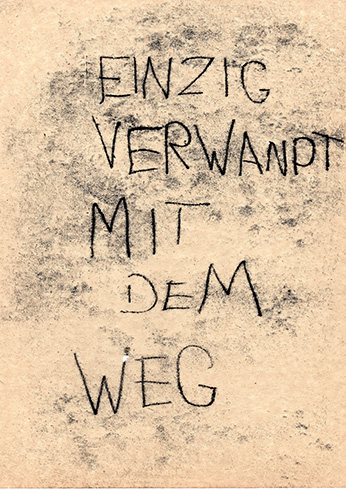 EINZIG
VERWANDT
MIT
DEM
WEG